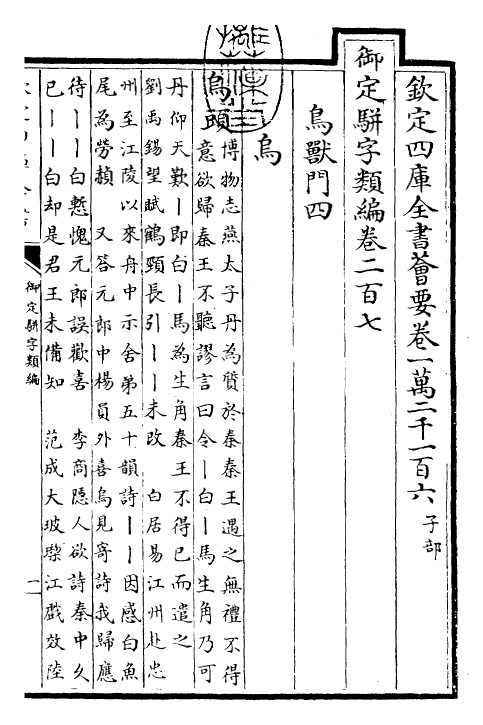 欽定四庫全書薈要卷一萬二千一百六 子部
御定駢字類編卷二百七
鳥獸門四
烏
烏頭 博物志燕太子丹為質於秦秦王遇之無禮不得
意欲歸秦王不聽謬言曰令丨白丨馬生角乃可
丹仰天歎丨即白丨馬為生角秦王不得已而遣之
劉禹錫望賦鶴頸長引丨丨未改 白居易江州赴忠
州至江陵以來舟中示舍弟五十韻詩丨丨因感白魚
尾為勞赬 又答元郎中楊員外喜烏見寄詩我歸應
待丨丨白慙愧元郎誤歡喜 李商隱人欲詩秦中久
已丨丨白却是君王未備知 范成大坡壂江戲效陸
御定駢字類編
一